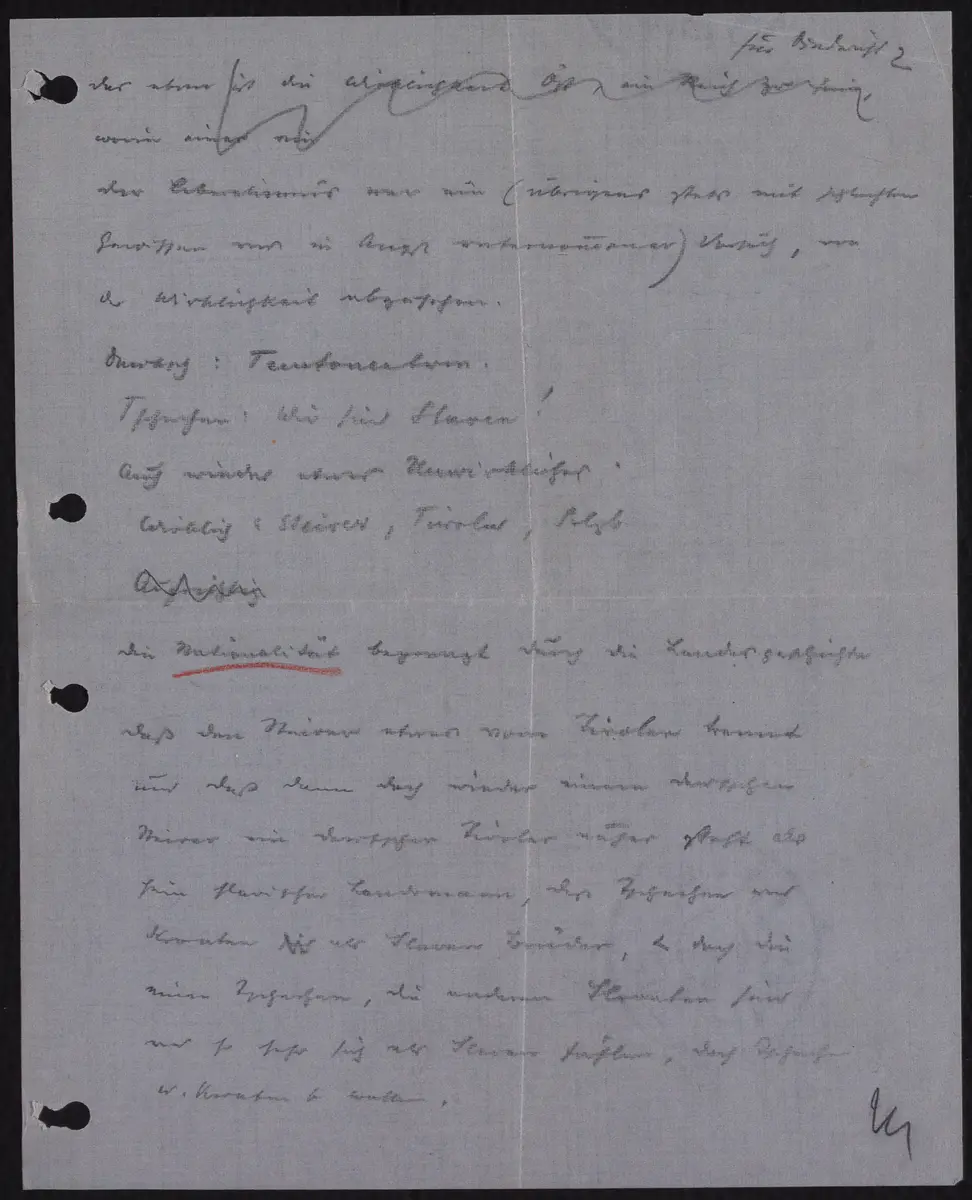 für
das eben ist die Wirklichkeit Öst, ein Reich zu sein,
worin einer
der Liberalismus war ein (übrigens stets mit schlechtem
Gewissen und in Angst unternommener) Versuch, von
d Wirklichkeit abzusehen.
: Teutonentum.
Tschechen: Wir sind Slaven!
Auch wieder etwas Unwirkliches.
Wirklich: Steirer, Tiroler, Salzb
die Nationalität begrenzt durch die Landesgeschichte
daß den Steirer etwas vom Tiroler trennt
und daß dann doch wieder einem deutschen
Steirer ein deutscher Tiroler näher steht als
sein slavischer Landsmann, daß Tschechen und
Kroaten als Slaven Brüder, & doch die
einen Tschechen, die anderen Kroaten sind
und so sehr sich als Slaven fühlen, doch Tschechen
u. Kroaten b wollen.